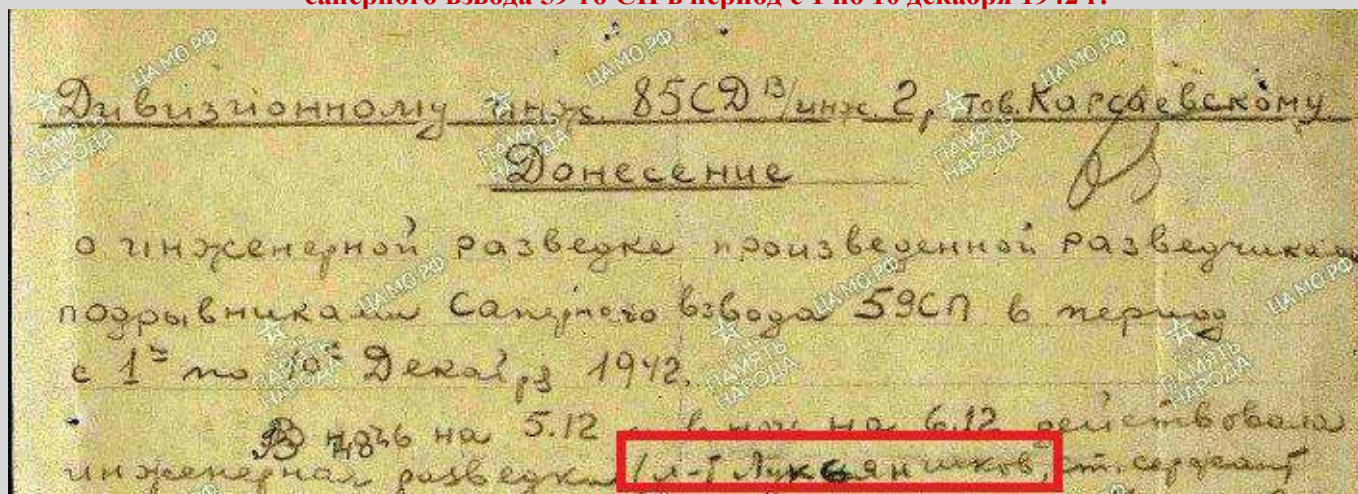 саперного взвода 59-го СП в период с 1 по 10 декабря 1942 г.
Дивизионному инж 85СД В/инж. 2, тов. Карсаевскому
Донесение
о инженерной разведке произведенной разведчиками
подрывниками Саперного взвода 59СП в период
с 1го по 10е Декабря 1942.
В ночь на 5.12 в ночь на 6.12 действовала
инженерная разведка /л-т Лукьянчиков, ст. сержант
ПАМЯТЬ НАРОДА
ЦАМО.РФ